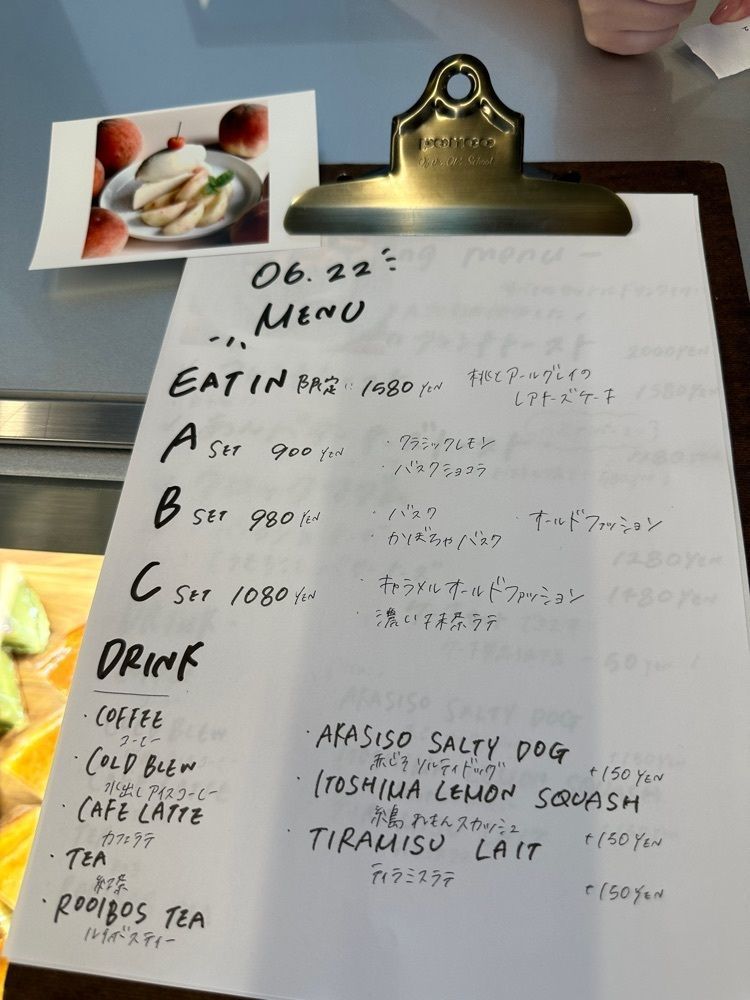 06.22
MENU
EAT IN 限定 1580 YEN 桃とアールグレイの
レアチーズケーキ
A SET 900 YEN ・クラシックレモン
・バスクショコラ
B SET 980 YEN ・バスク ・オールドファッション
・かぼちゃバスク
C SET 1080 YEN ・キャラメルオールドファッション
・濃い抹茶ラテ
DRINK
・COFFEE
コーヒー
・COLD BLEW
水出しアイスコーヒー
・CAFE LATTE
カフェラテ
・TEA
紅茶
・ROOIBOS TEA
ルイボスティー
・AKASISO SALTY DOG
赤じそソルティドッグ +150 YEN
・ITOSHIMA LEMON SQUASH
糸島れもんスカッシュ +150 YEN
・TIRAMISU LAIT
ティラミスラテ +150 YEN